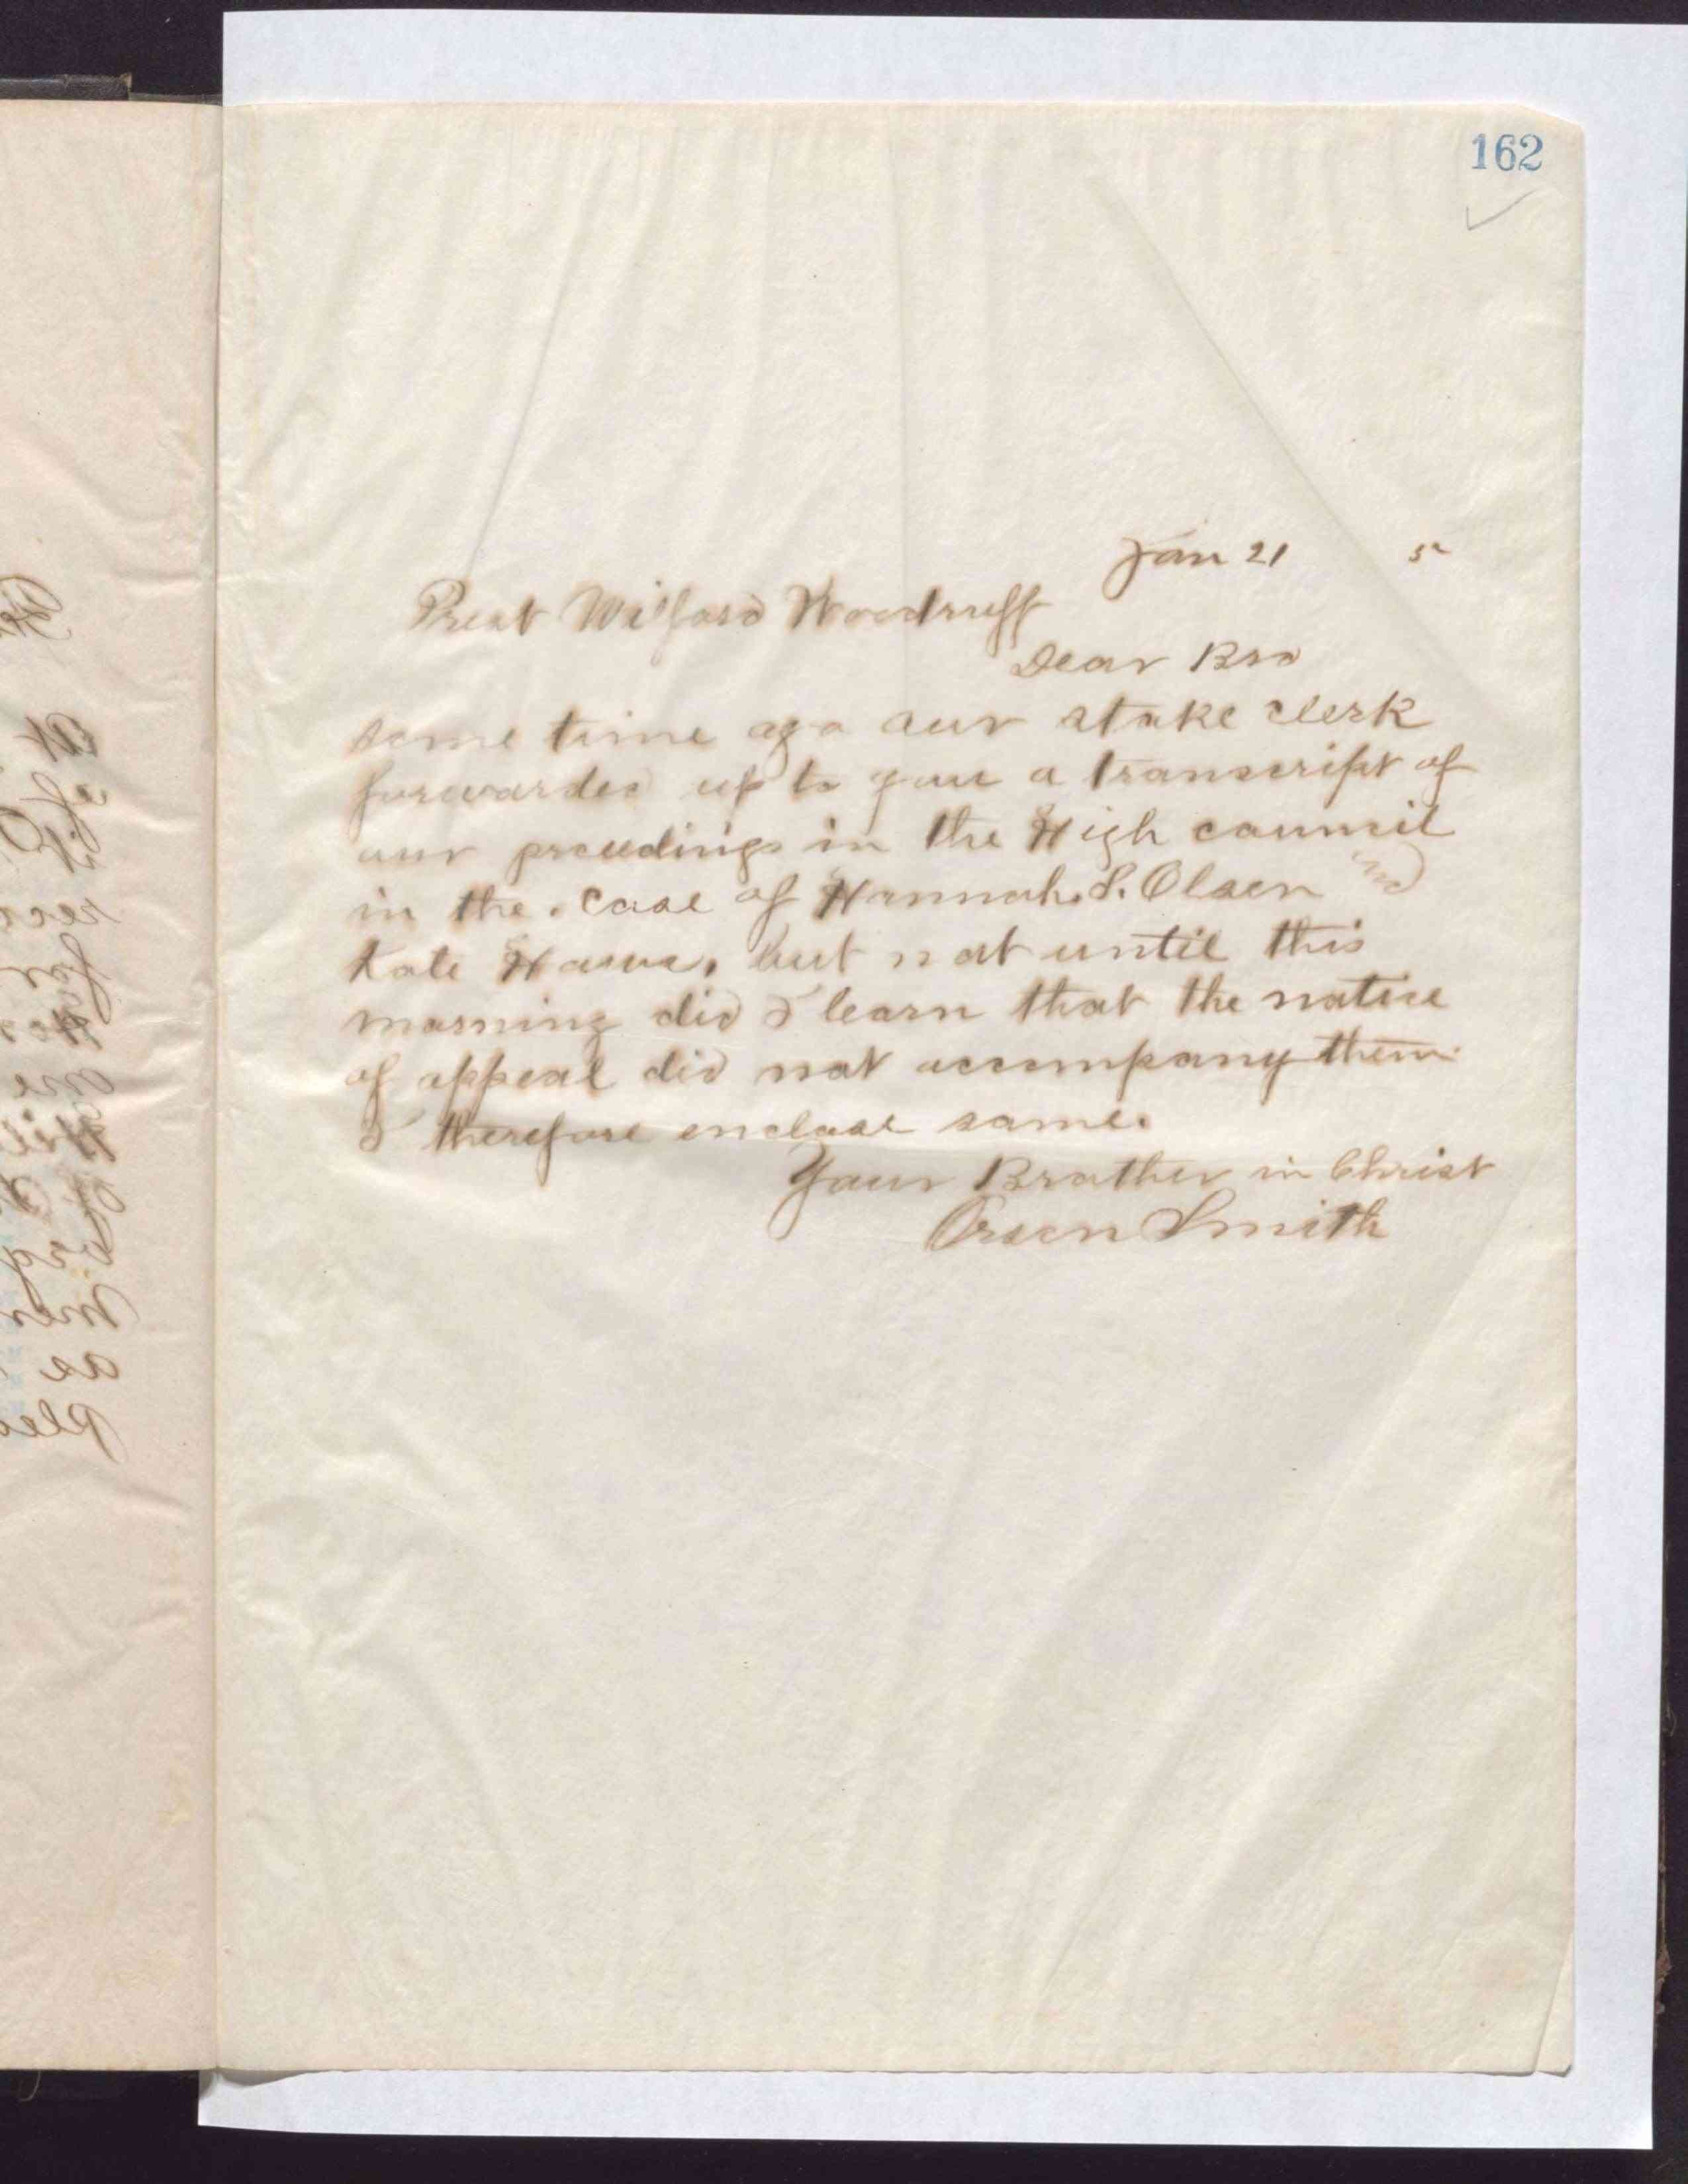 162
Jan 21 5
Prest Wilford Woodruff
Dear Bro
some time ago our stake clerk
forwarded up to you a transcript of
our proceedings in the High council
in the case of Hannah S. Olsen and
Kate but not until this
morning did I learn that the notice
of appeal did not accompany them
I therefore enclose same.
Your Brother in Christ
Orson Smith